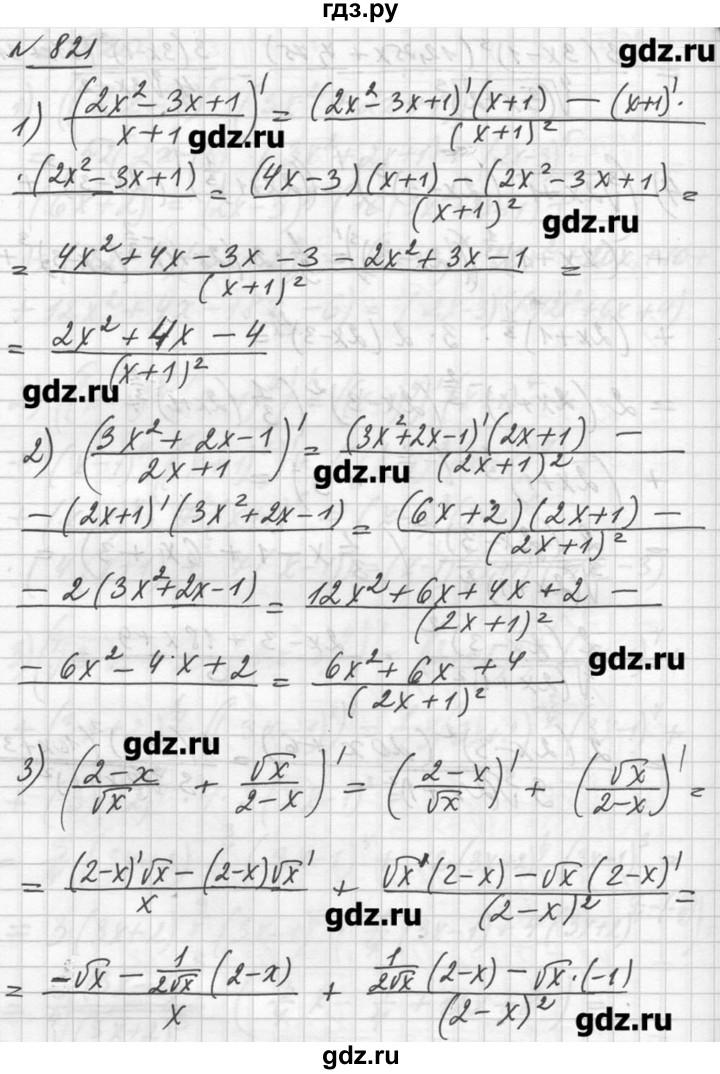 гдз.ру
№ 821
gdz.ru
1) ((2x² - 3x + 1)/(x + 1))' = ((2x² - 3x + 1)'(x + 1) - (x + 1)'·)/(x + 1)²
gdz.ru
·(2x² - 3x + 1) = ((4x - 3)(x + 1) - (2x² - 3x + 1))/(x + 1)² =
gdz.ru
= (4x² + 4x - 3x - 3 - 2x² + 3x - 1)/(x + 1)² =
= (2x² + 4x - 4)/(x + 1)²
gdz.ru
2) ((3x² + 2x - 1)/(2x + 1))' = ((3x² + 2x - 1)'(2x + 1) -)/(2x + 1)²
gdz.ru
- (2x + 1)'(3x² + 2x - 1) = ((6x + 2)(2x + 1) -)/(2x + 1)²
- 2(3x² + 2x - 1) = (12x² + 6x + 4x + 2 -)/(2x + 1)²
- 6x² - 4·x + 2 = (6x² + 6x + 4)/(2x + 1)²
gdz.ru
gdz.ru
3) ((2 - x)/√x + √x/(2 - x))' = ((2 - x)/√x)' + (√x/(2 - x))' =
= ((2 - x)'√x - (2 - x)√x')/x + (√x'(2 - x) - √x(2 - x)')/(2 - x)² =
gdz.ru
= (-√x - 1/(2√x) (2 - x))/x + (1/(2√x) (2 - x) - √x·(-1))/(2 - x)²
gdz.ru
gdz.ru